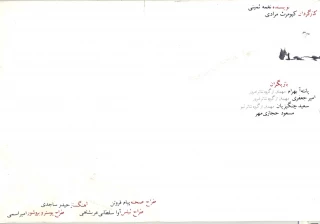 نویسنده نغمه ثمینی
کارگردان کیومرث مرادی
بازیگران
پانته‌آ بهرام
امیر جعفری
سعید چنگیزیان
مسعود حجازی‌مهر
طراح صحنه پیام فروتن
آهنگساز حیدر ساجدی
طراح لباس آوا سلطانی عربشاهی
طراح پوستر و بروشور امیر اسمی